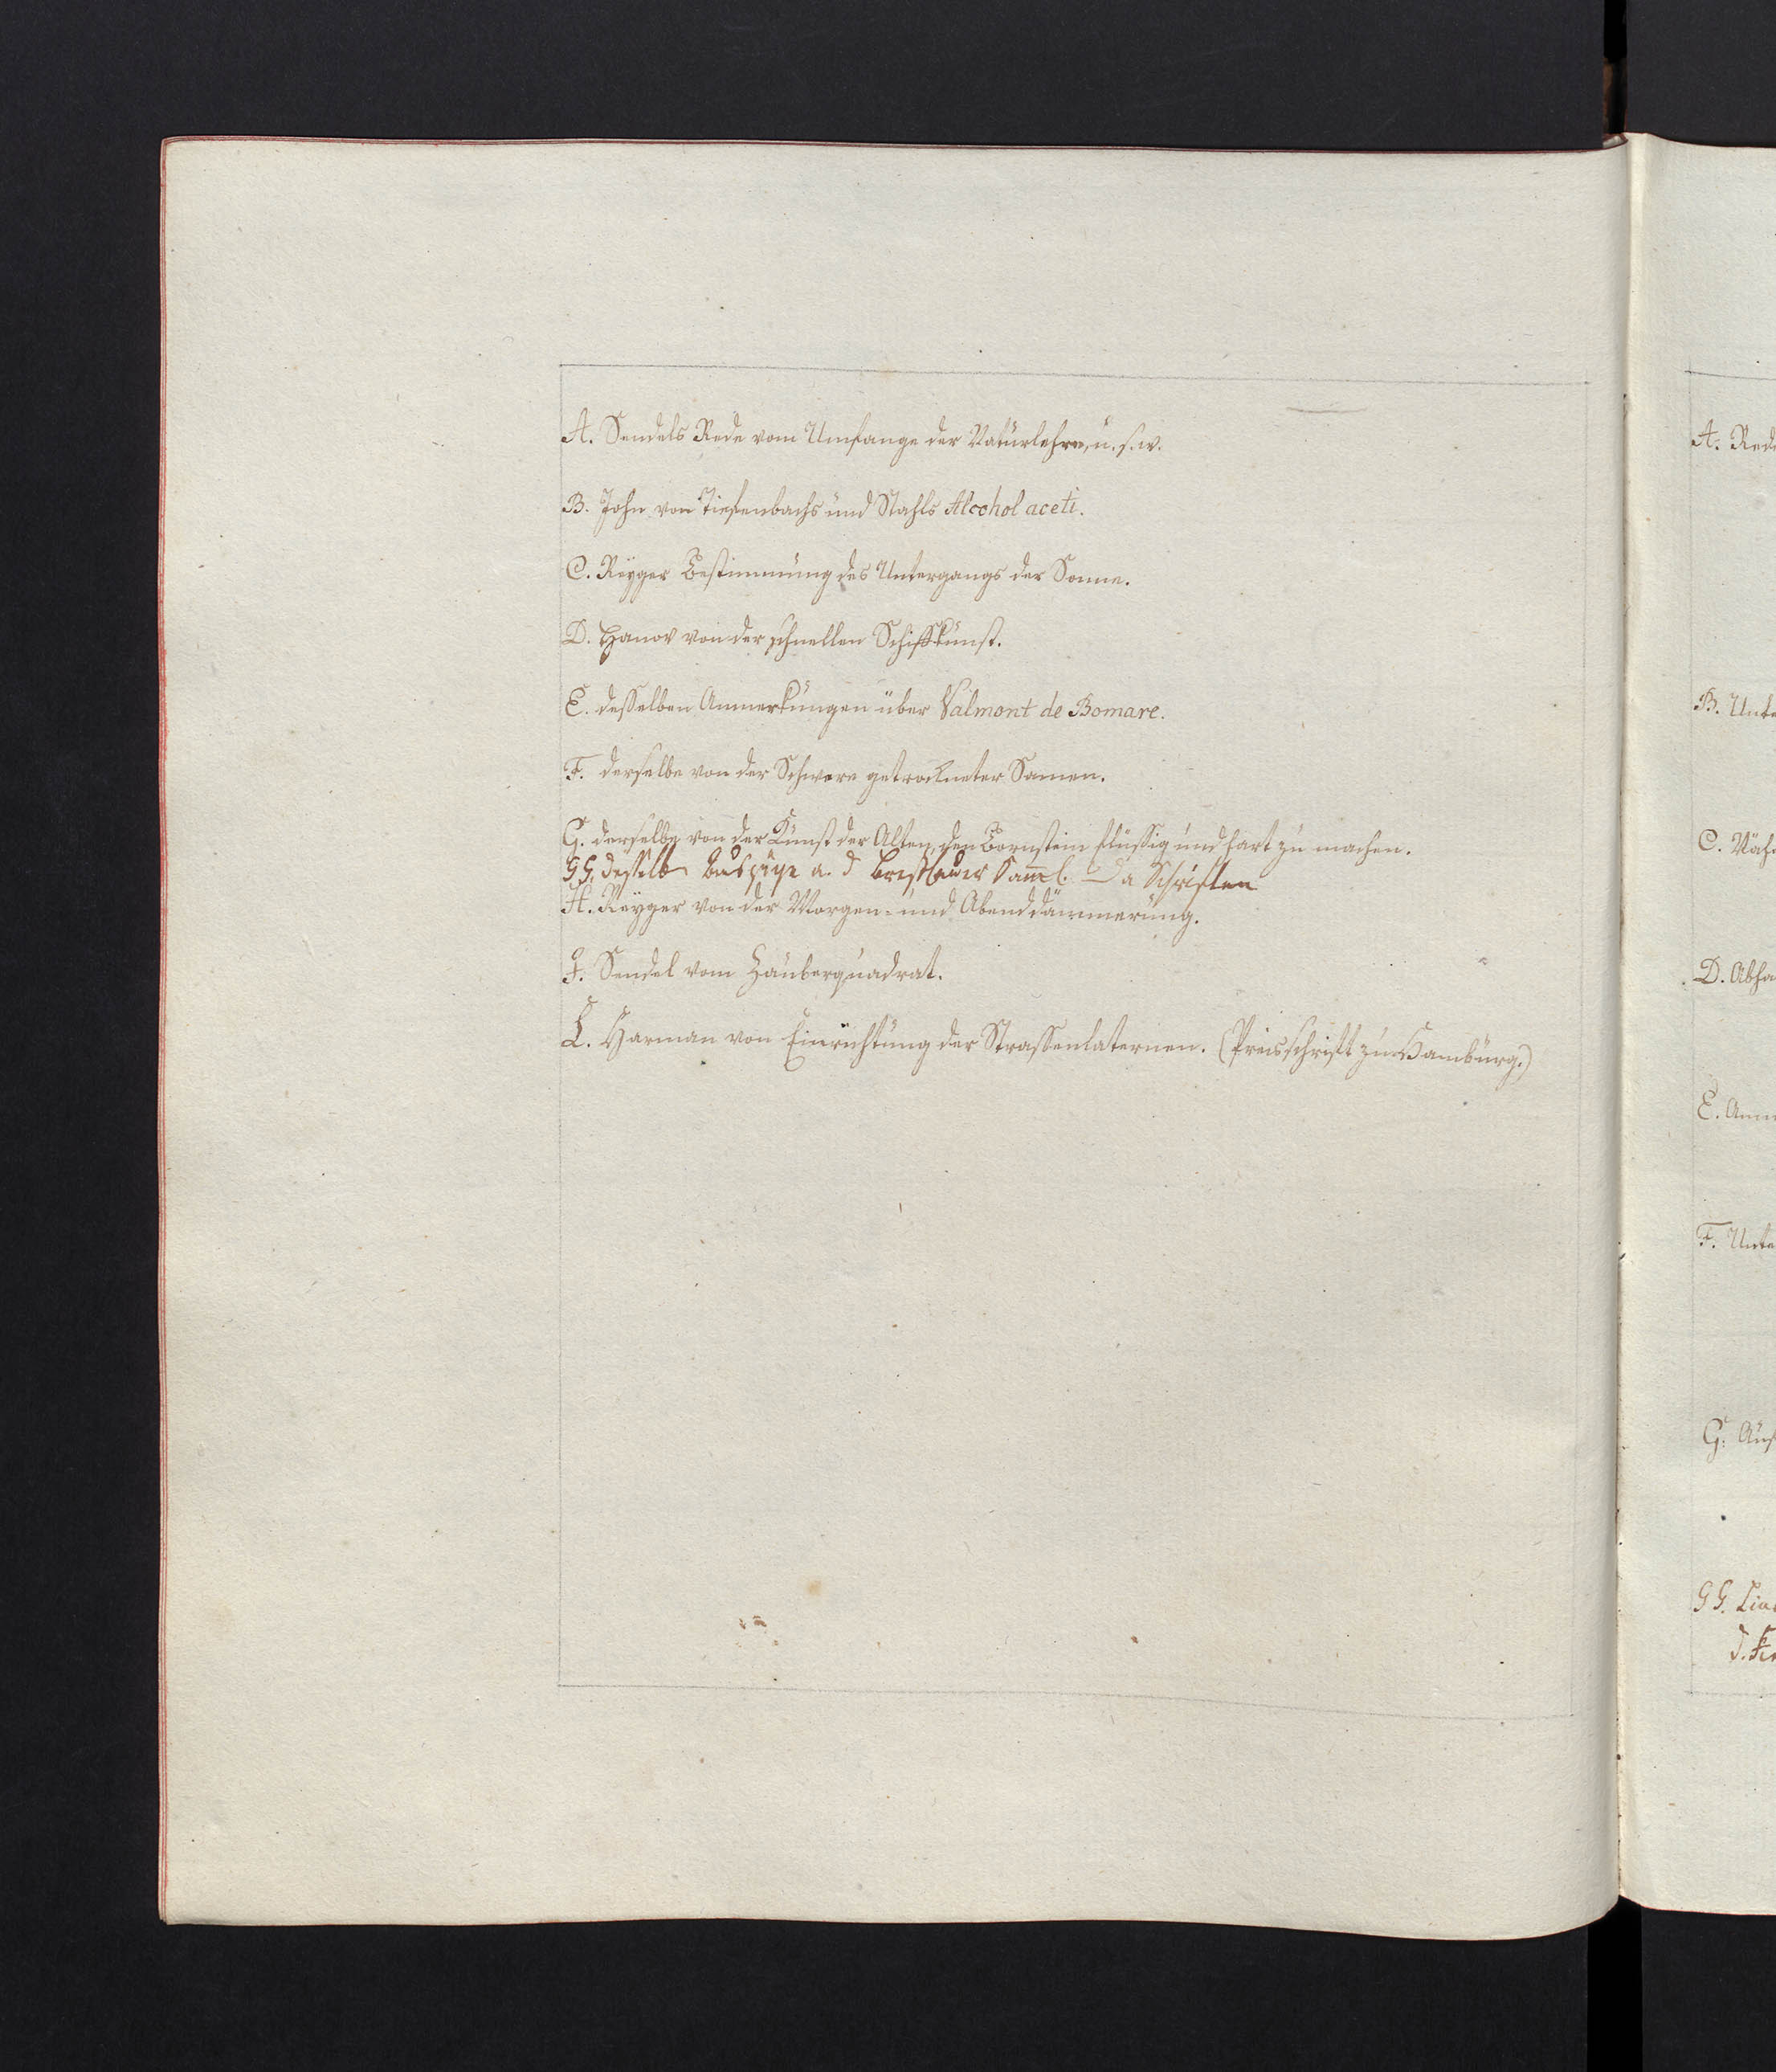 A. Sendels Rede vom Umfange der Naturlehre, u. s. w.
B. John von Tiefenbachs und Stahls Alcohol aceti.
C. Reyger Bestimmung des Untergangs der Sonne.
D. Hanov von der schnellen Schiffkunst.
E. desselben Anmerkungen über Valmont de Bomare.
F. derselbe von der Schwere getrockneter Samen.
G. derselbe von der Kunst der Alten, den Bornstein flüssig und hart zu machen.
GG. desselb Auszüge a. d Breßlauer Samml. Schriften
H. Reyger von der Morgen- und Abenddämmerung.
I. Sendel vom Zauberquadrat.
L. Harman von Einrichtung der Strassenlaternen. (Preisschrift zu Hamburg.)
A. Rede
B.
C.
D.
E.
F.
G.
GG.